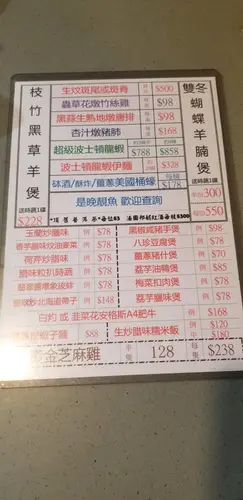 枝竹黑草羊煲
送時蔬1碟
$228
生炆斑尾或斑脊 每份 $500
蟲草花燉竹絲雞 每盅 $98
黑蒜生熟地燉唐排 每盅 $98
杏汁燉豬肺 每盅 $168
超級波士頓龍蝦 $788 $858
波士頓龍蝦伊麵 $328
砵酒/酥炸/薑蔥美國桶蠔 $178
是晚靚魚 歡迎查詢
雙冬蝴蝶羊腩煲
送時蔬1碟
300
550
玉蘭炒臘味 例 $78
例 $78
荷芹炒臘味 例 $78
臘味粒扒時蔬 例 $78
例 $78
例 $148
$88
黑椒鹹豬手煲 例 $98
八珍豆腐煲 例 $78
薑蔥豬什煲 例 $78
荔芋油鴨煲 例 $85
梅菜扣肉煲 例 $78
荔芋臘味煲 例 $78
白灼 或 韭菜花安格斯A4肥牛 例 $168
生炒臘味糯米飯 例 $120
中 $180
金芝麻雞 半隻 128 每隻 $238